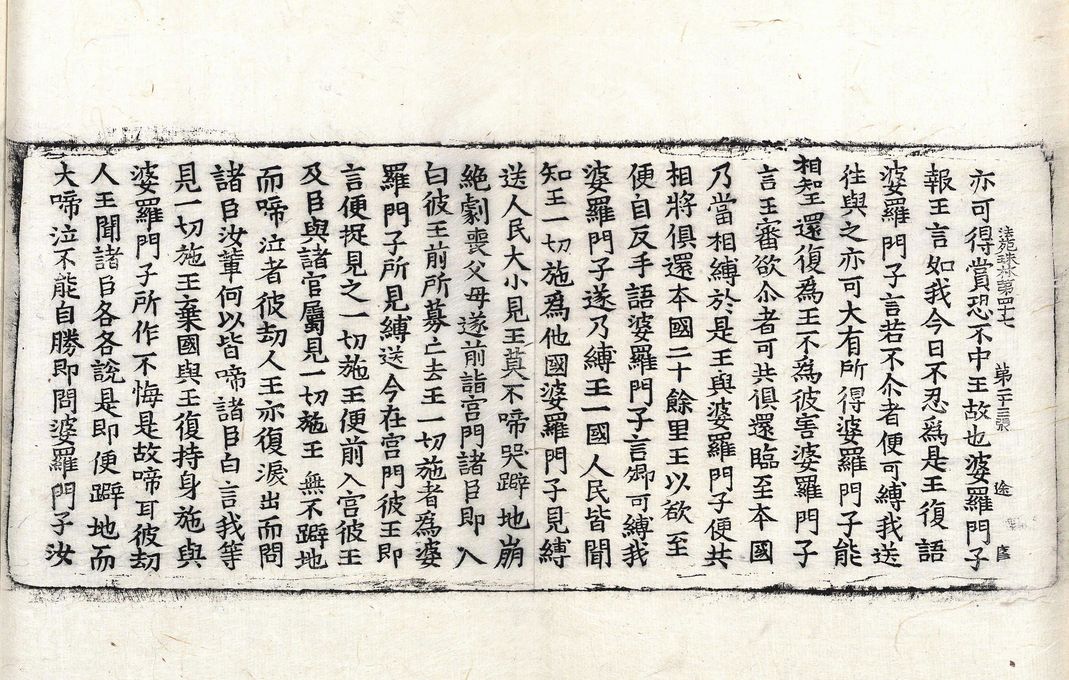 法苑珠林第四十七 第 張 途
亦可得賞恐不中王故也婆羅門子
報王言如我今日不忍爲是王復語
婆羅門子言若不尒者便可縛我送
徃與之亦可大有所得婆羅門子能
相 還復為王不為彼害婆羅門子
言王審欲尒者可共俱還臨至本國
乃當相縛於是王與婆羅門子便共
相將俱還本國二十餘里王以欲至
便自反手語婆羅門子言卿可縛我
婆羅門子遂乃縛王一國人民皆聞
知王一切施爲他國婆羅門子見縛
送人民大小見王莫不啼哭躃地崩
絶劇喪父母遂前詣宮門諸臣即入
白彼王前所募亡去王一切施者為婆
羅門子所見縛送今在宮門彼王即
言便捉見之一切施王便前入宮彼王
及臣與諸官屬見一切施王無不躃地
而啼泣者彼劫人王亦復淚出而問
諸臣汝輩何以皆啼諸臣白言我等
見一切施王棄國與王復持身施與
婆羅門子所作不悔是故啼耳彼劫
人王聞諸臣各各說是即便躃地而
大啼泣不能自勝即問婆羅門子汝